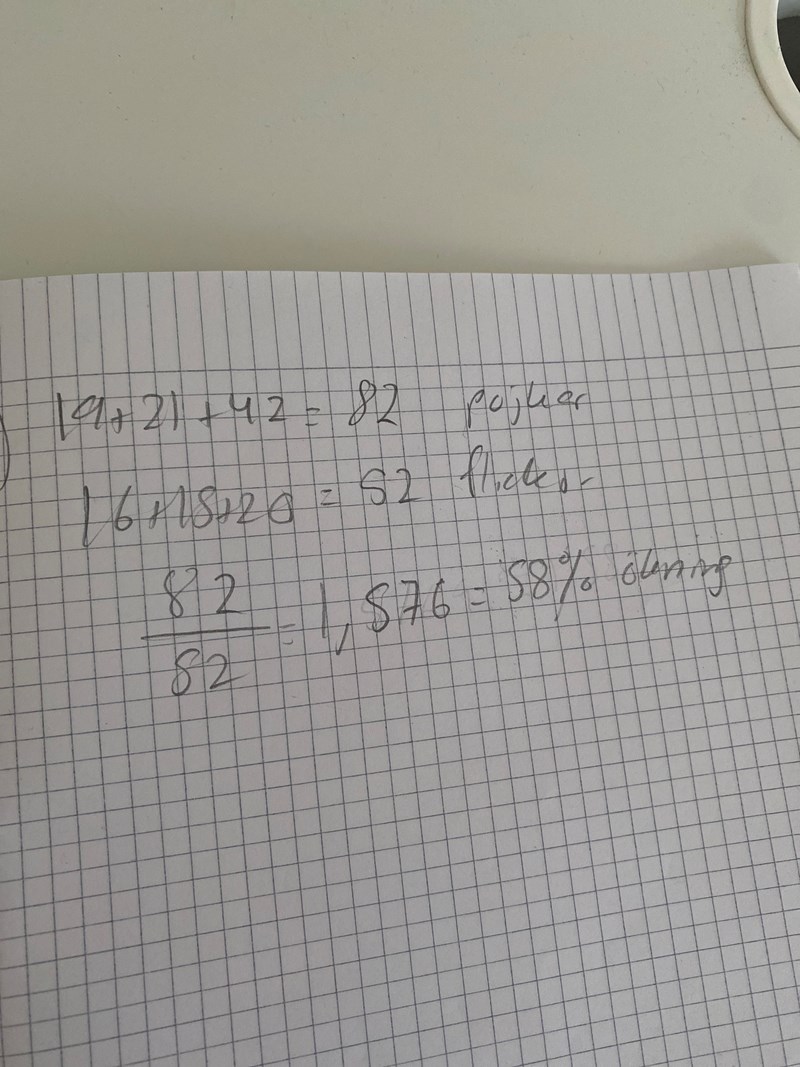 19+21+42 = 82 pojkar
16+15+20 = 52 flickor
82
52
= 1,576 = 58% ökning